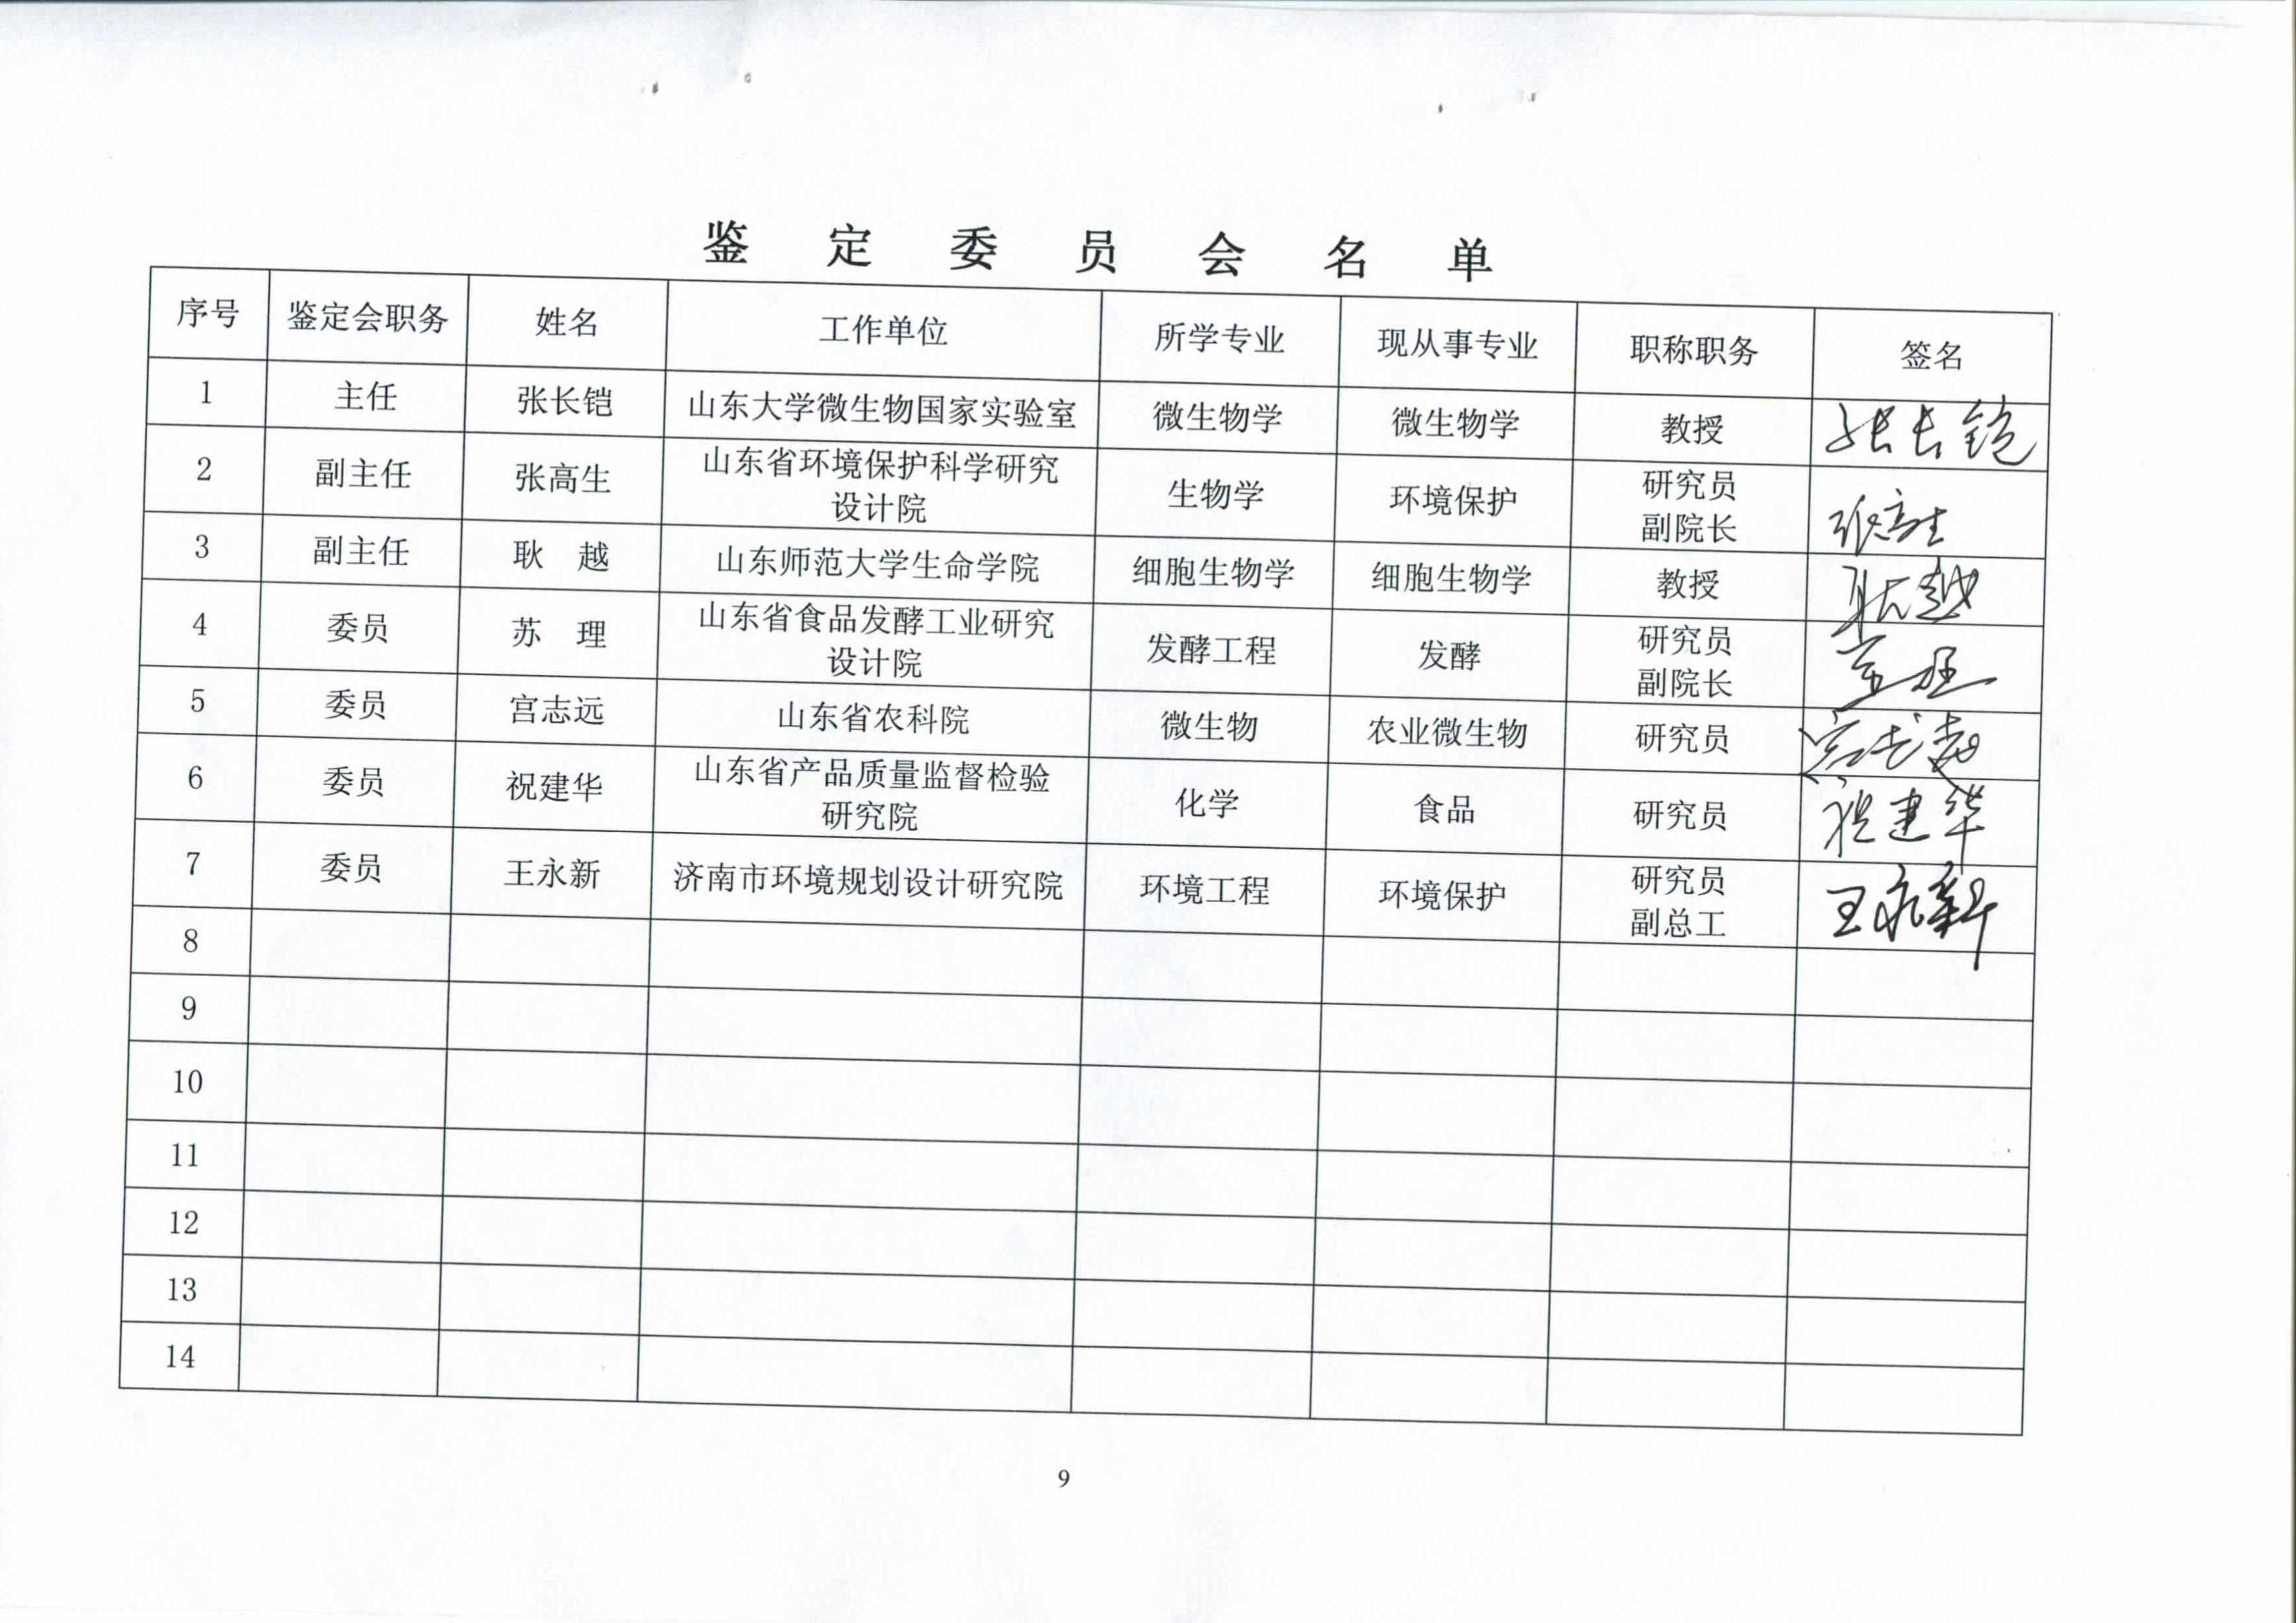 鉴定委员会名单
序号 鉴定会职务 姓名 工作单位 所学专业 现从事专业 职称职务 签名
1 主任 张长铠 山东大学微生物国家实验室 微生物学 微生物学 教授 张长铠
2 副主任 张高生 山东省环境保护科学研究 生物学 环境保护 研究员 张高生
设计院 副院长
3 副主任 耿 越 山东师范大学生命学院 细胞生物学 细胞生物学 教授 耿越
4 委员 苏 理 山东省食品发酵工业研究 发酵工程 发酵 研究员 苏理
设计院 副院长
5 委员 宫志远 山东省农科院 微生物 农业微生物 研究员 宫志远
6 委员 祝建华 山东省产品质量监督检验 化学 食品 研究员 祝建华
研究院
7 委员 王永新 济南市环境规划设计研究院 环境工程 环境保护 研究员 王永新
副总工
8
9
10
11
12
13
14
9